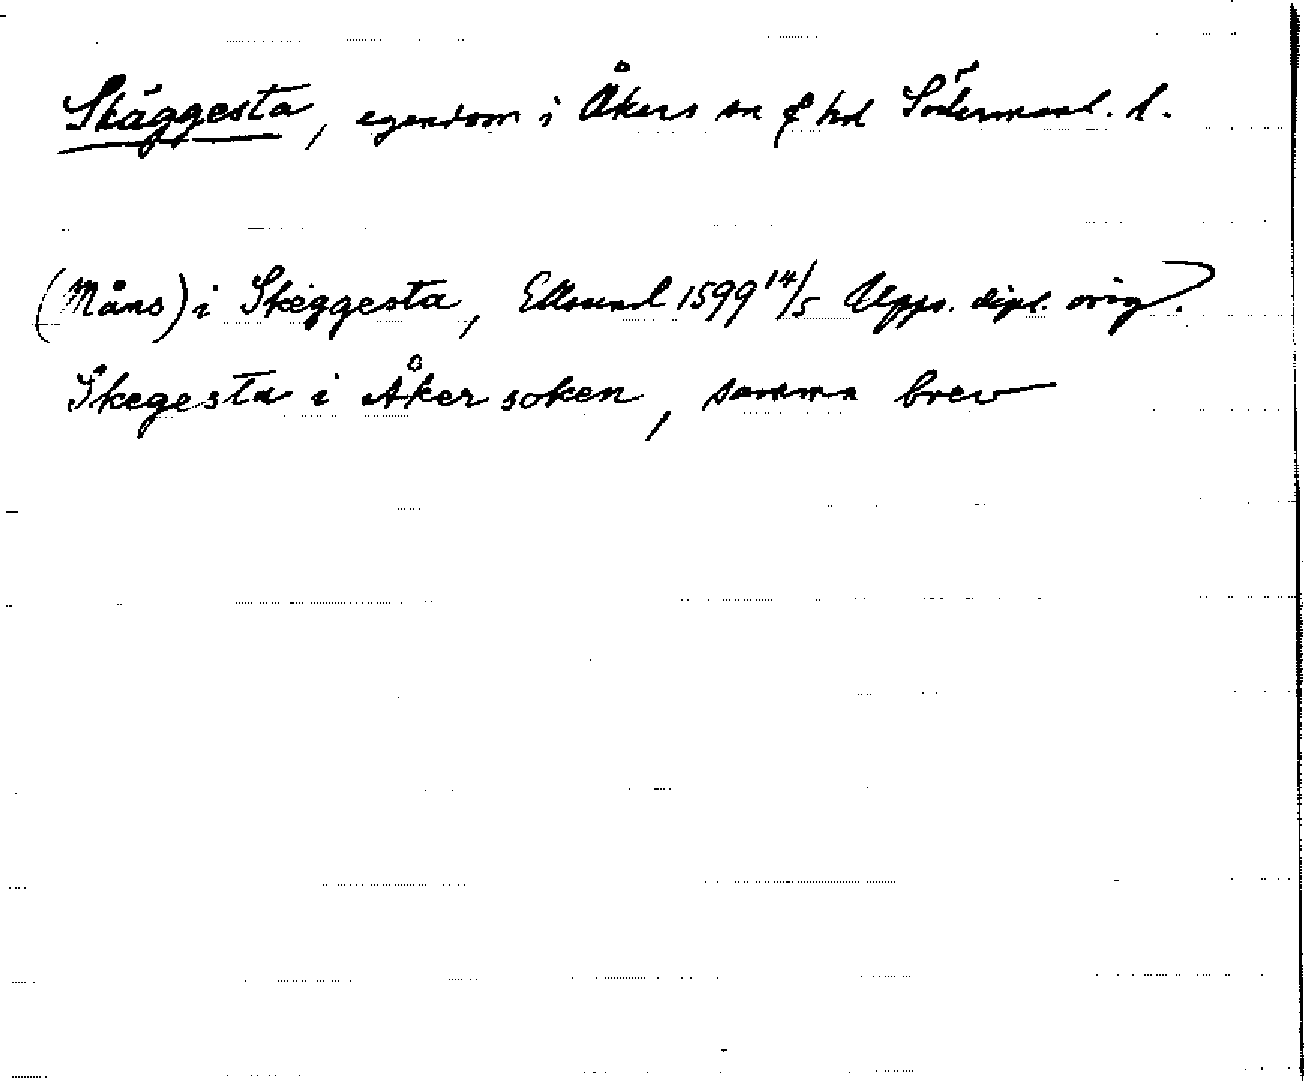 Skäggesta, egendom i Åkers sn & hd Södermanl. l.
(Måns) i Skeggesta, Eklsund 1599 14/5 Upps. dipl. orig.
Skegesta i Åker soken, samma brev